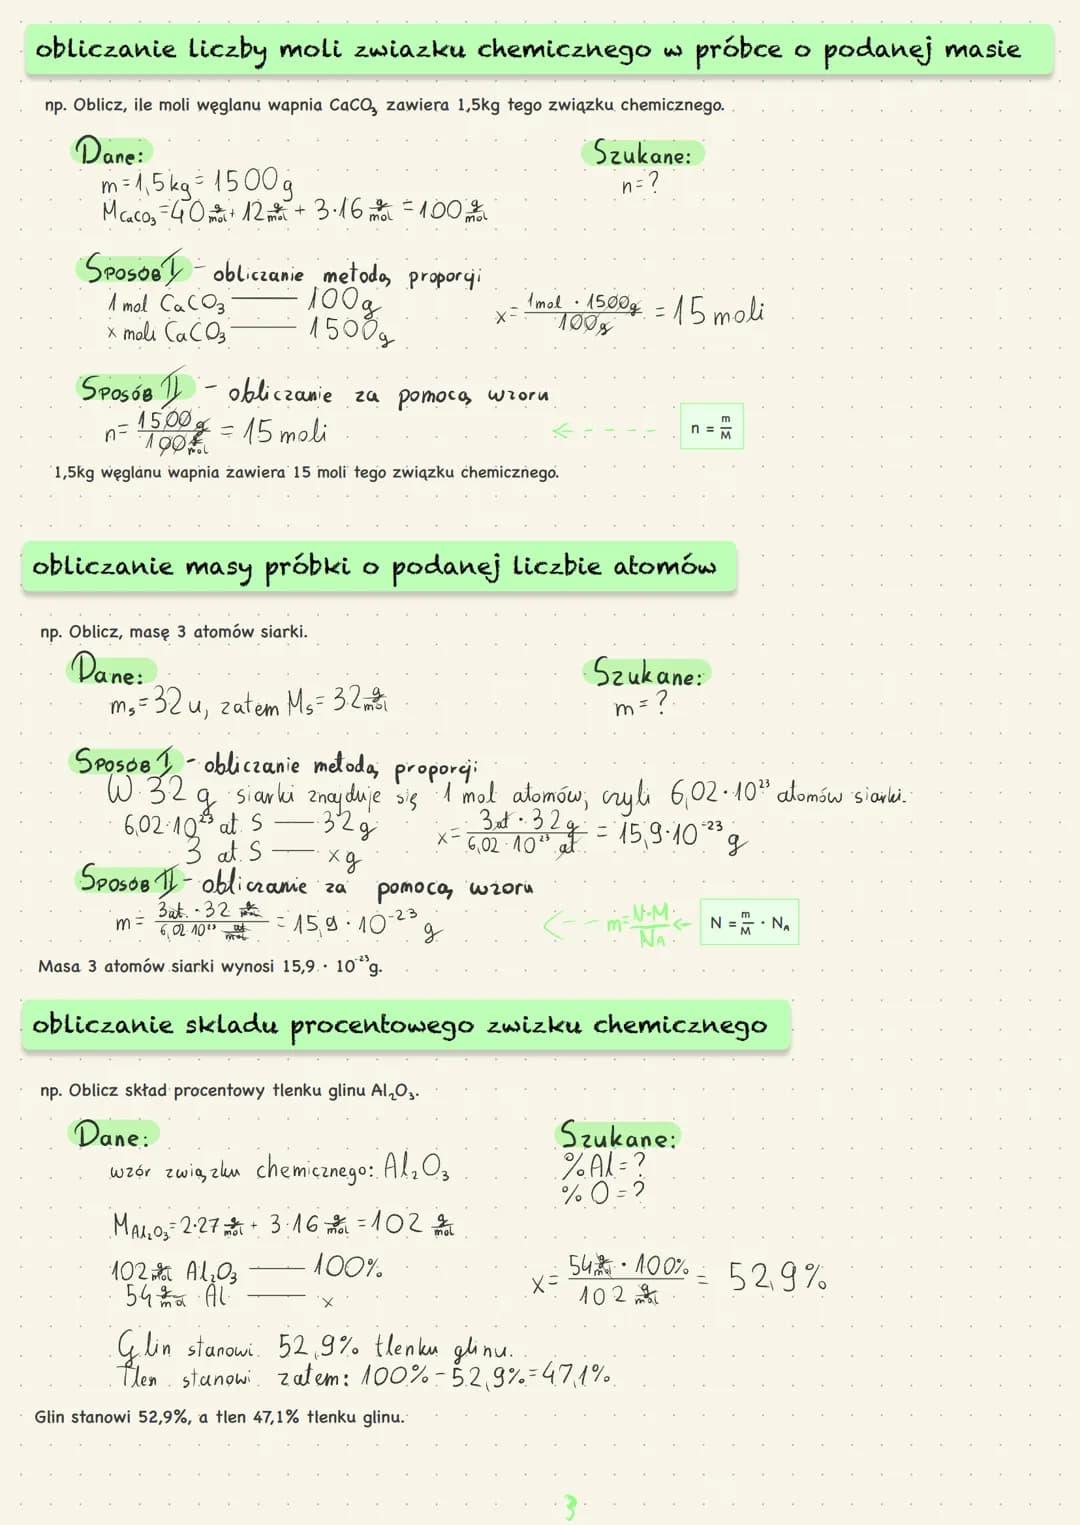 obliczanie liczby moli zwiazku chemicznego w próbce o podanej masie
np. Oblicz, ile moli węglanu wapnia CaCO₃ zawiera 1,5kg tego związku chemicznego.
Dane:
Szukane:
m=1,5kg=1500g
n=?
M CaCO₃=40 g/mol + 12 g/mol + 3·16 g/mol = 100 g/mol
Sposób I - obliczanie metodą proporcji
1 mol CaCO₃ — 100g
x moli CaCO₃ — 1500g
x= 1mol · 1500g / 100g = 15 moli
Sposób II - obliczanie za pomocą wzoru
n= 1500 g / 100 g/mol = 15 moli
n = m/M
1,5kg węglanu wapnia zawiera 15 moli tego związku chemicznego.
obliczanie masy próbki o podanej liczbie atomów
np. Oblicz, masę 3 atomów siarki.
Dane:
Szukane:
mₛ=32u, zatem Mₛ=32 g/mol
m=?
Sposób I - obliczanie metodą proporcji
W 32 g siarki znajduje się 1 mol atomów, czyli 6,02·10²³ atomów siarki.
6,02·10²³ at. S — 32g
3 at. S — xg
x= 3at · 32g / 6,02·10²³ at = 15,9·10⁻²³ g
Sposób II - obliczanie za pomocą wzoru
m= 3at. · 32 g/mol / 6,02·10²³ at/mol = 15,9 · 10⁻²³ g
m= N·M/NA
N = m/M · NA
Masa 3 atomów siarki wynosi 15,9 · 10⁻²³g.
obliczanie składu procentowego zwizku chemicznego
np. Oblicz skład procentowy tlenku glinu Al₂O₃.
Dane:
Szukane:
wzór związku chemicznego: Al₂O₃
%Al=?
%O=?
M Al₂O₃=2·27 g/mol + 3·16 g/mol = 102 g/mol
102 g/mol Al₂O₃ — 100%
54 g/mol Al — x
x= 54 g/mol · 100% / 102 g/mol = 52,9%
Glin stanowi 52,9% tlenku glinu.
Tlen stanowi zatem: 100%-52,9%=47,1%
Glin stanowi 52,9%, a tlen 47,1% tlenku glinu.
3